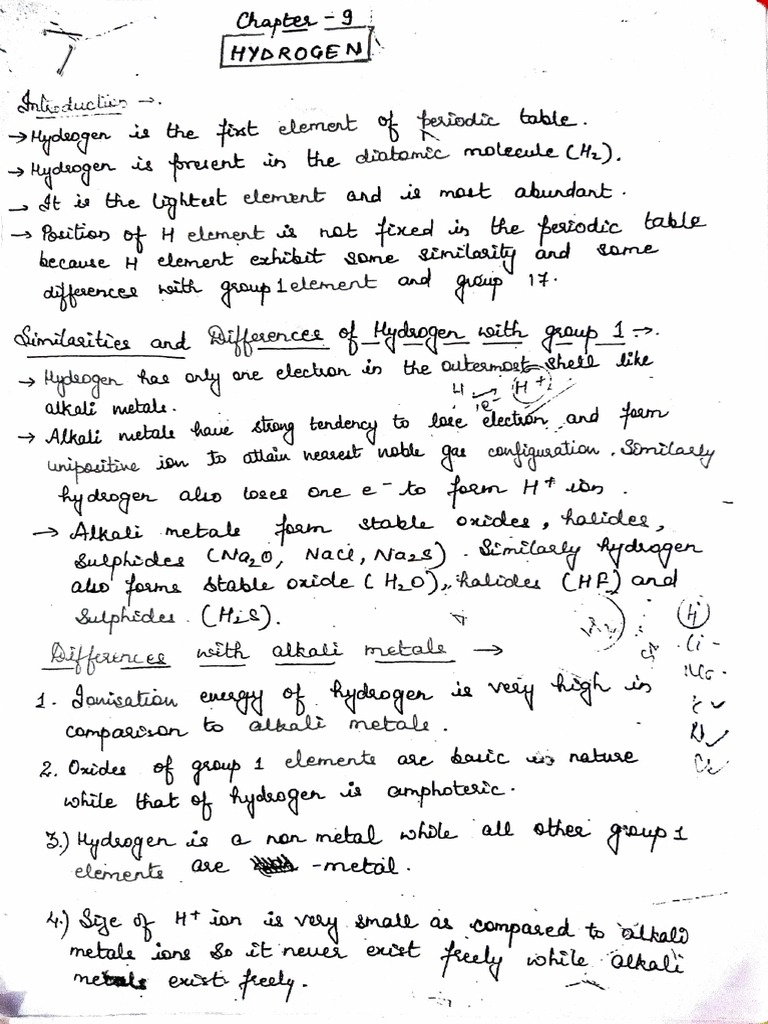 Chapter - 9
HYDROGEN
Introduction →.
→ Hydrogen is the first element of periodic table.
→ Hydrogen is present in the diatomic molecule (H₂).
→ It is the lightest element and is most abundant.
→ Position of H element is not fixed in the periodic table
because H element exhibit some similarity and some
differences with group 1 element and group 17.
Similarities and Differences of Hydrogen with group 1 →.
→ Hydrogen has only one electron in the outermost shell like
H → H⁺
e⁻
alkali metals.
→ Alkali metals have strong tendency to lose electron and form
unipositive ion to attain nearest noble gas configuration. Similarly
hydrogen also loses one e⁻ to form H⁺ ion.
→ Alkali metals form stable oxides, halides,
sulphides (Na₂O, NaCl, Na₂S). Similarly hydrogen
also forms stable oxide (H₂O), halides (HF) and
sulphides. (H₂S).
H
Differences with alkali metals →
1. Ionisation energy of hydrogen is very high in
comparison to alkali metals.
Rb
2. Oxides of group 1 elements are basic in nature
while that of hydrogen is amphoteric.
3.) Hydrogen is a non metal while all other group 1
elements are -metal.
4.) Size of H⁺ ion is very small as compared to alkali
metals ions so it never exist freely while alkali
metals exist freely.